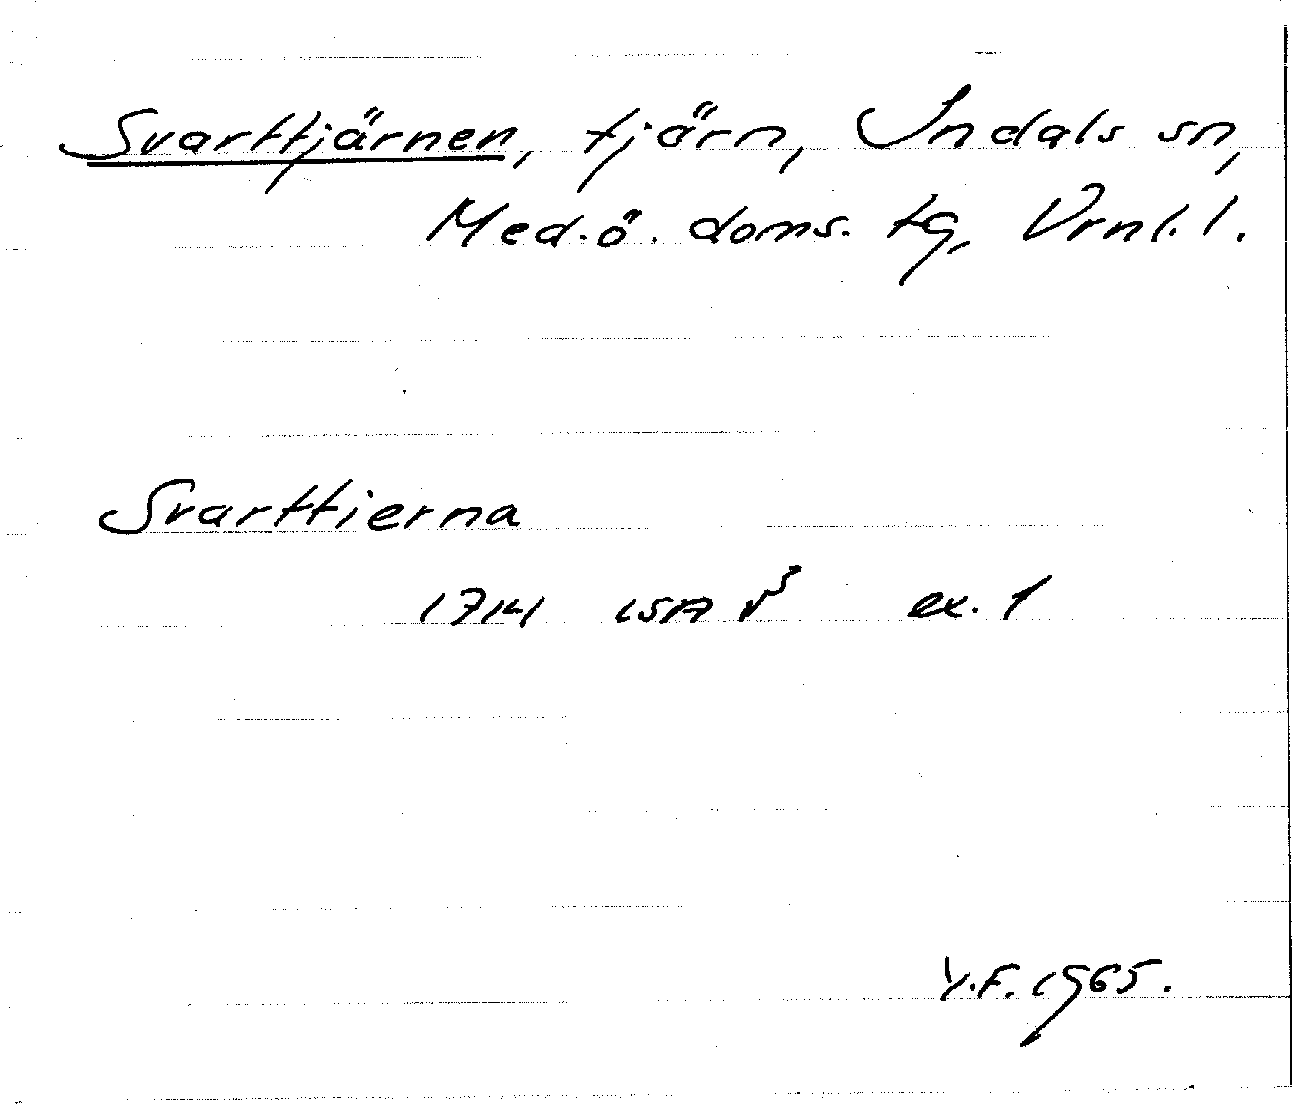 Svarttjärnen, tjärn, Indals sn,
Med.ö. doms. tg, Vrnl. l.
Svarttierna
1714 LSA ex. 1
Y.F. 1965.